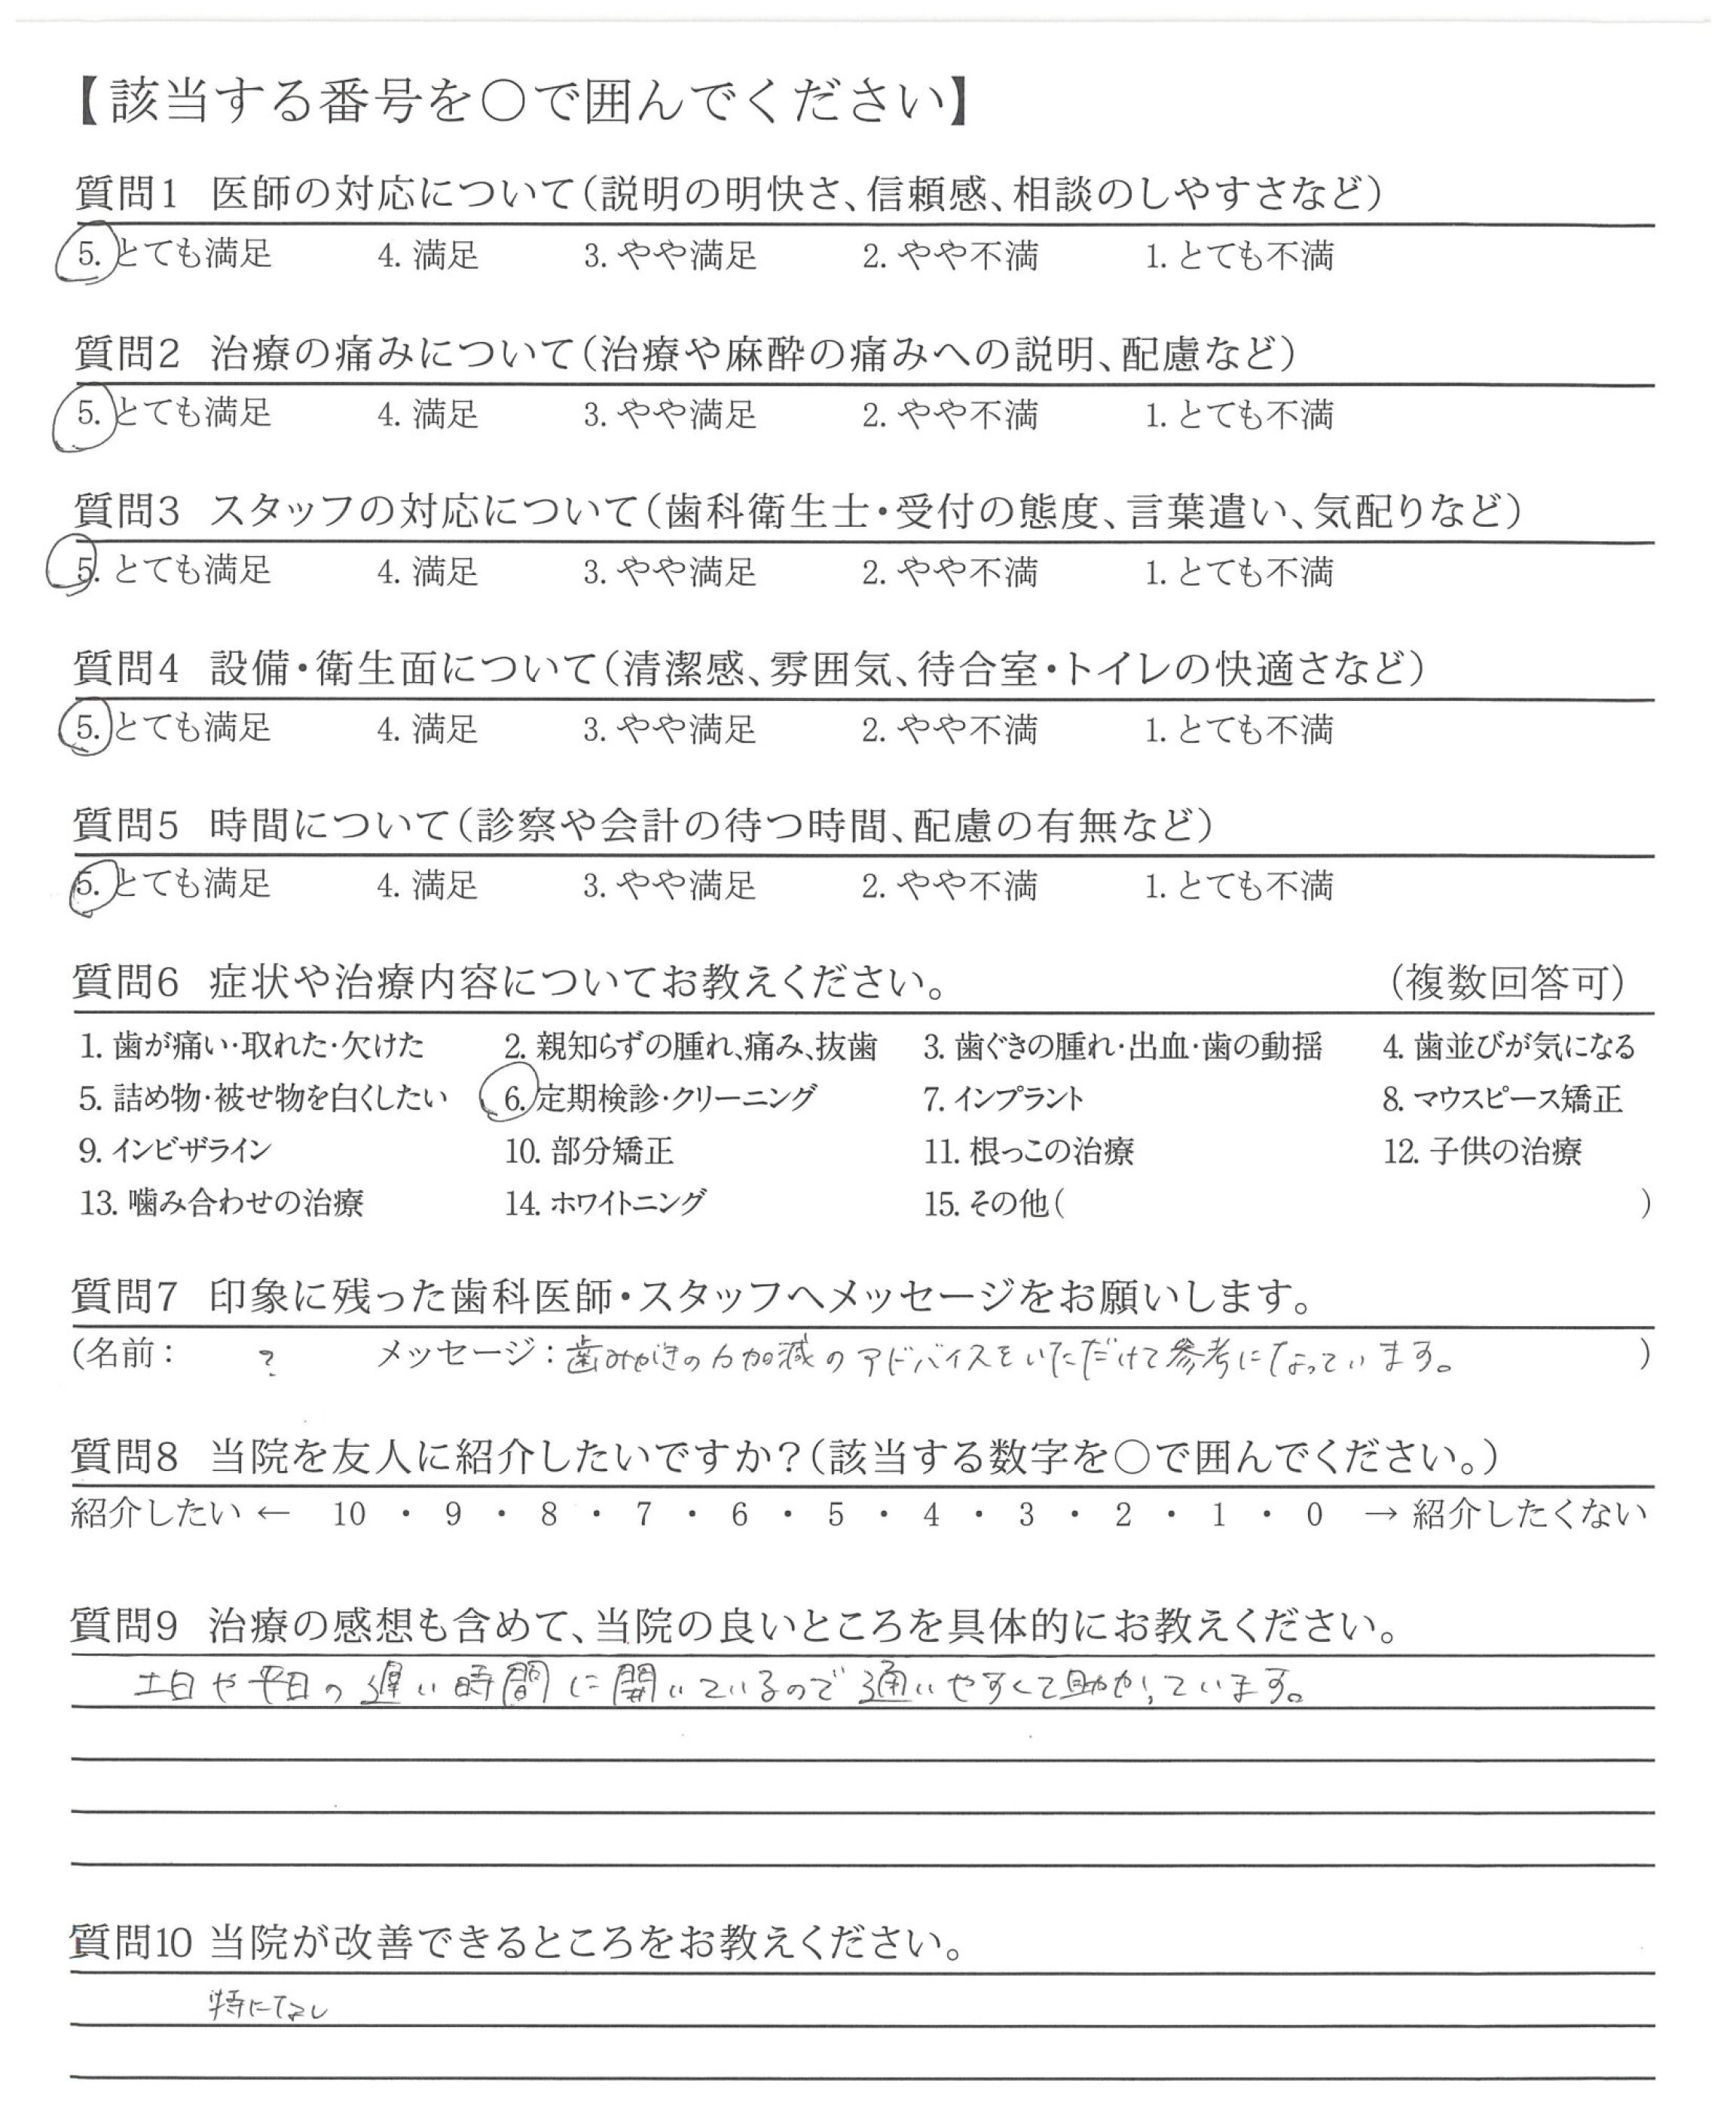 【該当する番号を○で囲んでください】
質問1 医師の対応について（説明の明快さ、信頼感、相談のしやすさなど）
5. とても満足 4. 満足 3. やや満足 2. やや不満 1. とても不満
質問2 治療の痛みについて（治療や麻酔の痛みへの説明、配慮など）
5. とても満足 4. 満足 3. やや満足 2. やや不満 1. とても不満
質問3 スタッフの対応について（歯科衛生士・受付の態度、言葉遣い、気配りなど）
5. とても満足 4. 満足 3. やや満足 2. やや不満 1. とても不満
質問4 設備・衛生面について（清潔感、雰囲気、待合室・トイレの快適さなど）
5. とても満足 4. 満足 3. やや満足 2. やや不満 1. とても不満
質問5 時間について（診察や会計の待つ時間、配慮の有無など）
5. とても満足 4. 満足 3. やや満足 2. やや不満 1. とても不満
質問6 症状や治療内容についてお教えください。 （複数回答可）
1. 歯が痛い・取れた・欠けた 2. 親知らずの腫れ、痛み、抜歯 3. 歯ぐきの腫れ・出血・歯の動揺 4. 歯並びが気になる
5. 詰め物・被せ物を白くしたい 6. 定期検診・クリーニング 7. インプラント 8. マウスピース矯正
9. インビザライン 10. 部分矯正 11. 根っこの治療 12. 子供の治療
13. 噛み合わせの治療 14. ホワイトニング 15. その他（ ）
質問7 印象に残った歯科医師・スタッフへメッセージをお願いします。
（名前： ? メッセージ：歯みがきの力加減のアドバイスをいただけて参考になっています。 ）
質問8 当院を友人に紹介したいですか？（該当する数字を○で囲んでください。）
紹介したい ← 10 ・ 9 ・ 8 ・ 7 ・ 6 ・ 5 ・ 4 ・ 3 ・ 2 ・ 1 ・ 0 → 紹介したくない
質問9 治療の感想も含めて、当院の良いところを具体的にお教えください。
土日や平日の遅い時間に開いているので通いやすくて助かっています。
質問10 当院が改善できるところをお教えください。
特になし